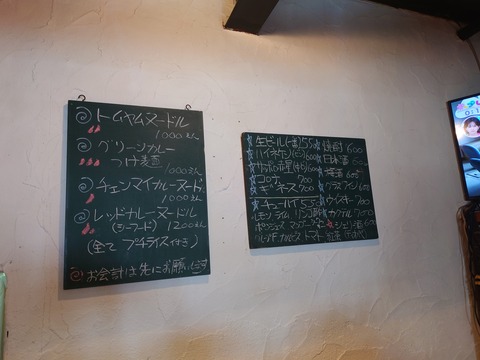 トムヤムヌードル
1000えん
グリーンカレー
つけ麺
1000えん
チェンマイカレーヌードル
1000えん
レッドカレーヌードル
(シーフード) 1200えん
(全て プチライス付き)
お会計は先にお願いします
生ビール(一番)550
ハイネケン(ビン)600
コロナ 700
ギネス 700
チューハイ 550
レモン ライム リンゴ酢
トマト 紅茶
焼酎 600
日本酒 600
梅酒 600
グラスワイン 600
ウイスキー 700
カクテル 700